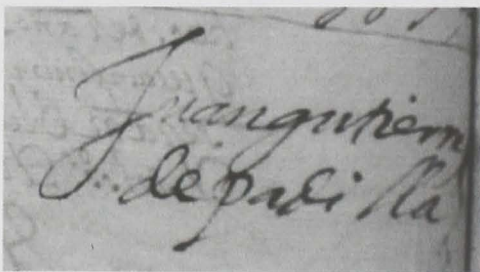 Juangutierrz
de padilla